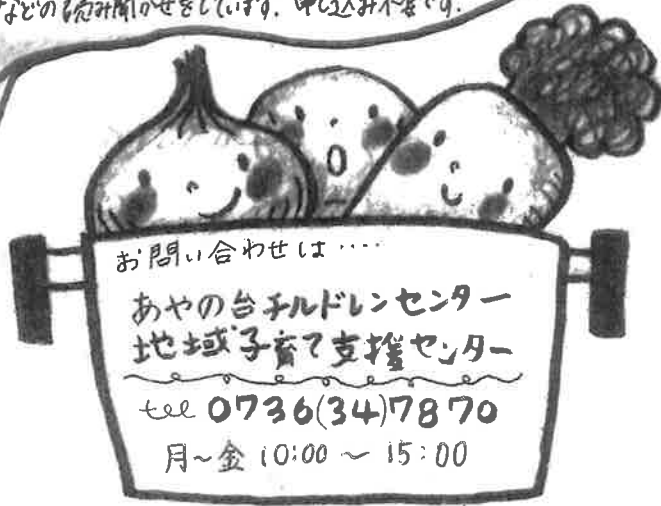 などの読み聞かせをしています。申し込み不要です。
お問い合わせは‥‥
あやの台チルドレンセンター
地域子育て支援センター
tel 0736(34)7870
月～金 10:00 ～ 15:00